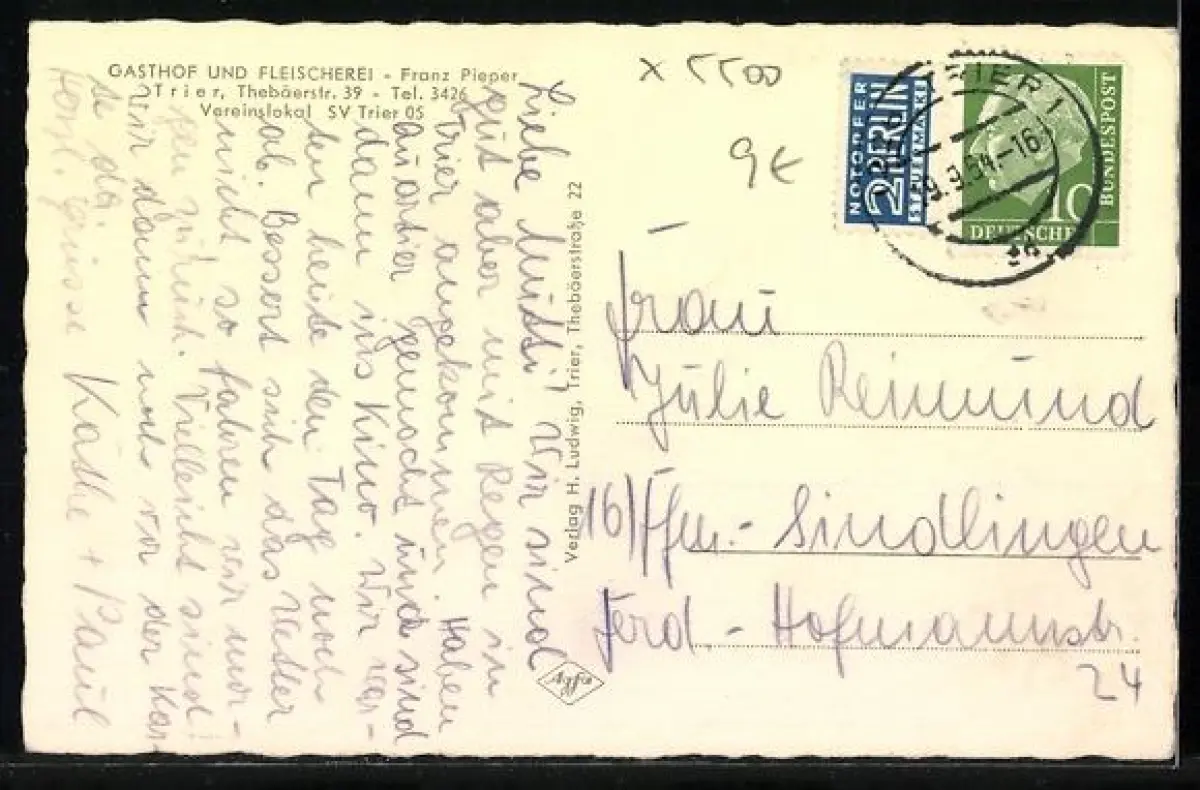 GASTHOF UND FLEISCHEREI - Franz Pieper
Trier, Thebäerstr. 39 - Tel. 3426
Vereinslokal SV Trier 05
Liebe Mutti! Wir sind
gut aber mit Regen in
Trier angekommen. Haben
Quartier gemacht und sind
dann ins Kino. Wir war-
ten heute den Tag noch
ab. Bessert sich das Wetter
nicht so fahren wir mor-
gen zurück. Vielleicht sind
wir dann noch vor der Kar-
te da.
Herzl. Grüsse Käthe + Paul
Verlag H. Ludwig, Trier, Thebäerstraße 22
Agfa
x 5500
9€
NOTOPFER
2 BERLIN
STEUERMARKE
TRIER 1
9.9.54.-16
10
DEUTSCHE
BUNDESPOST
Frau
Julie Reimund
16) Ffm.- Sindlingen
Ferd.- Hofmannstr.
24